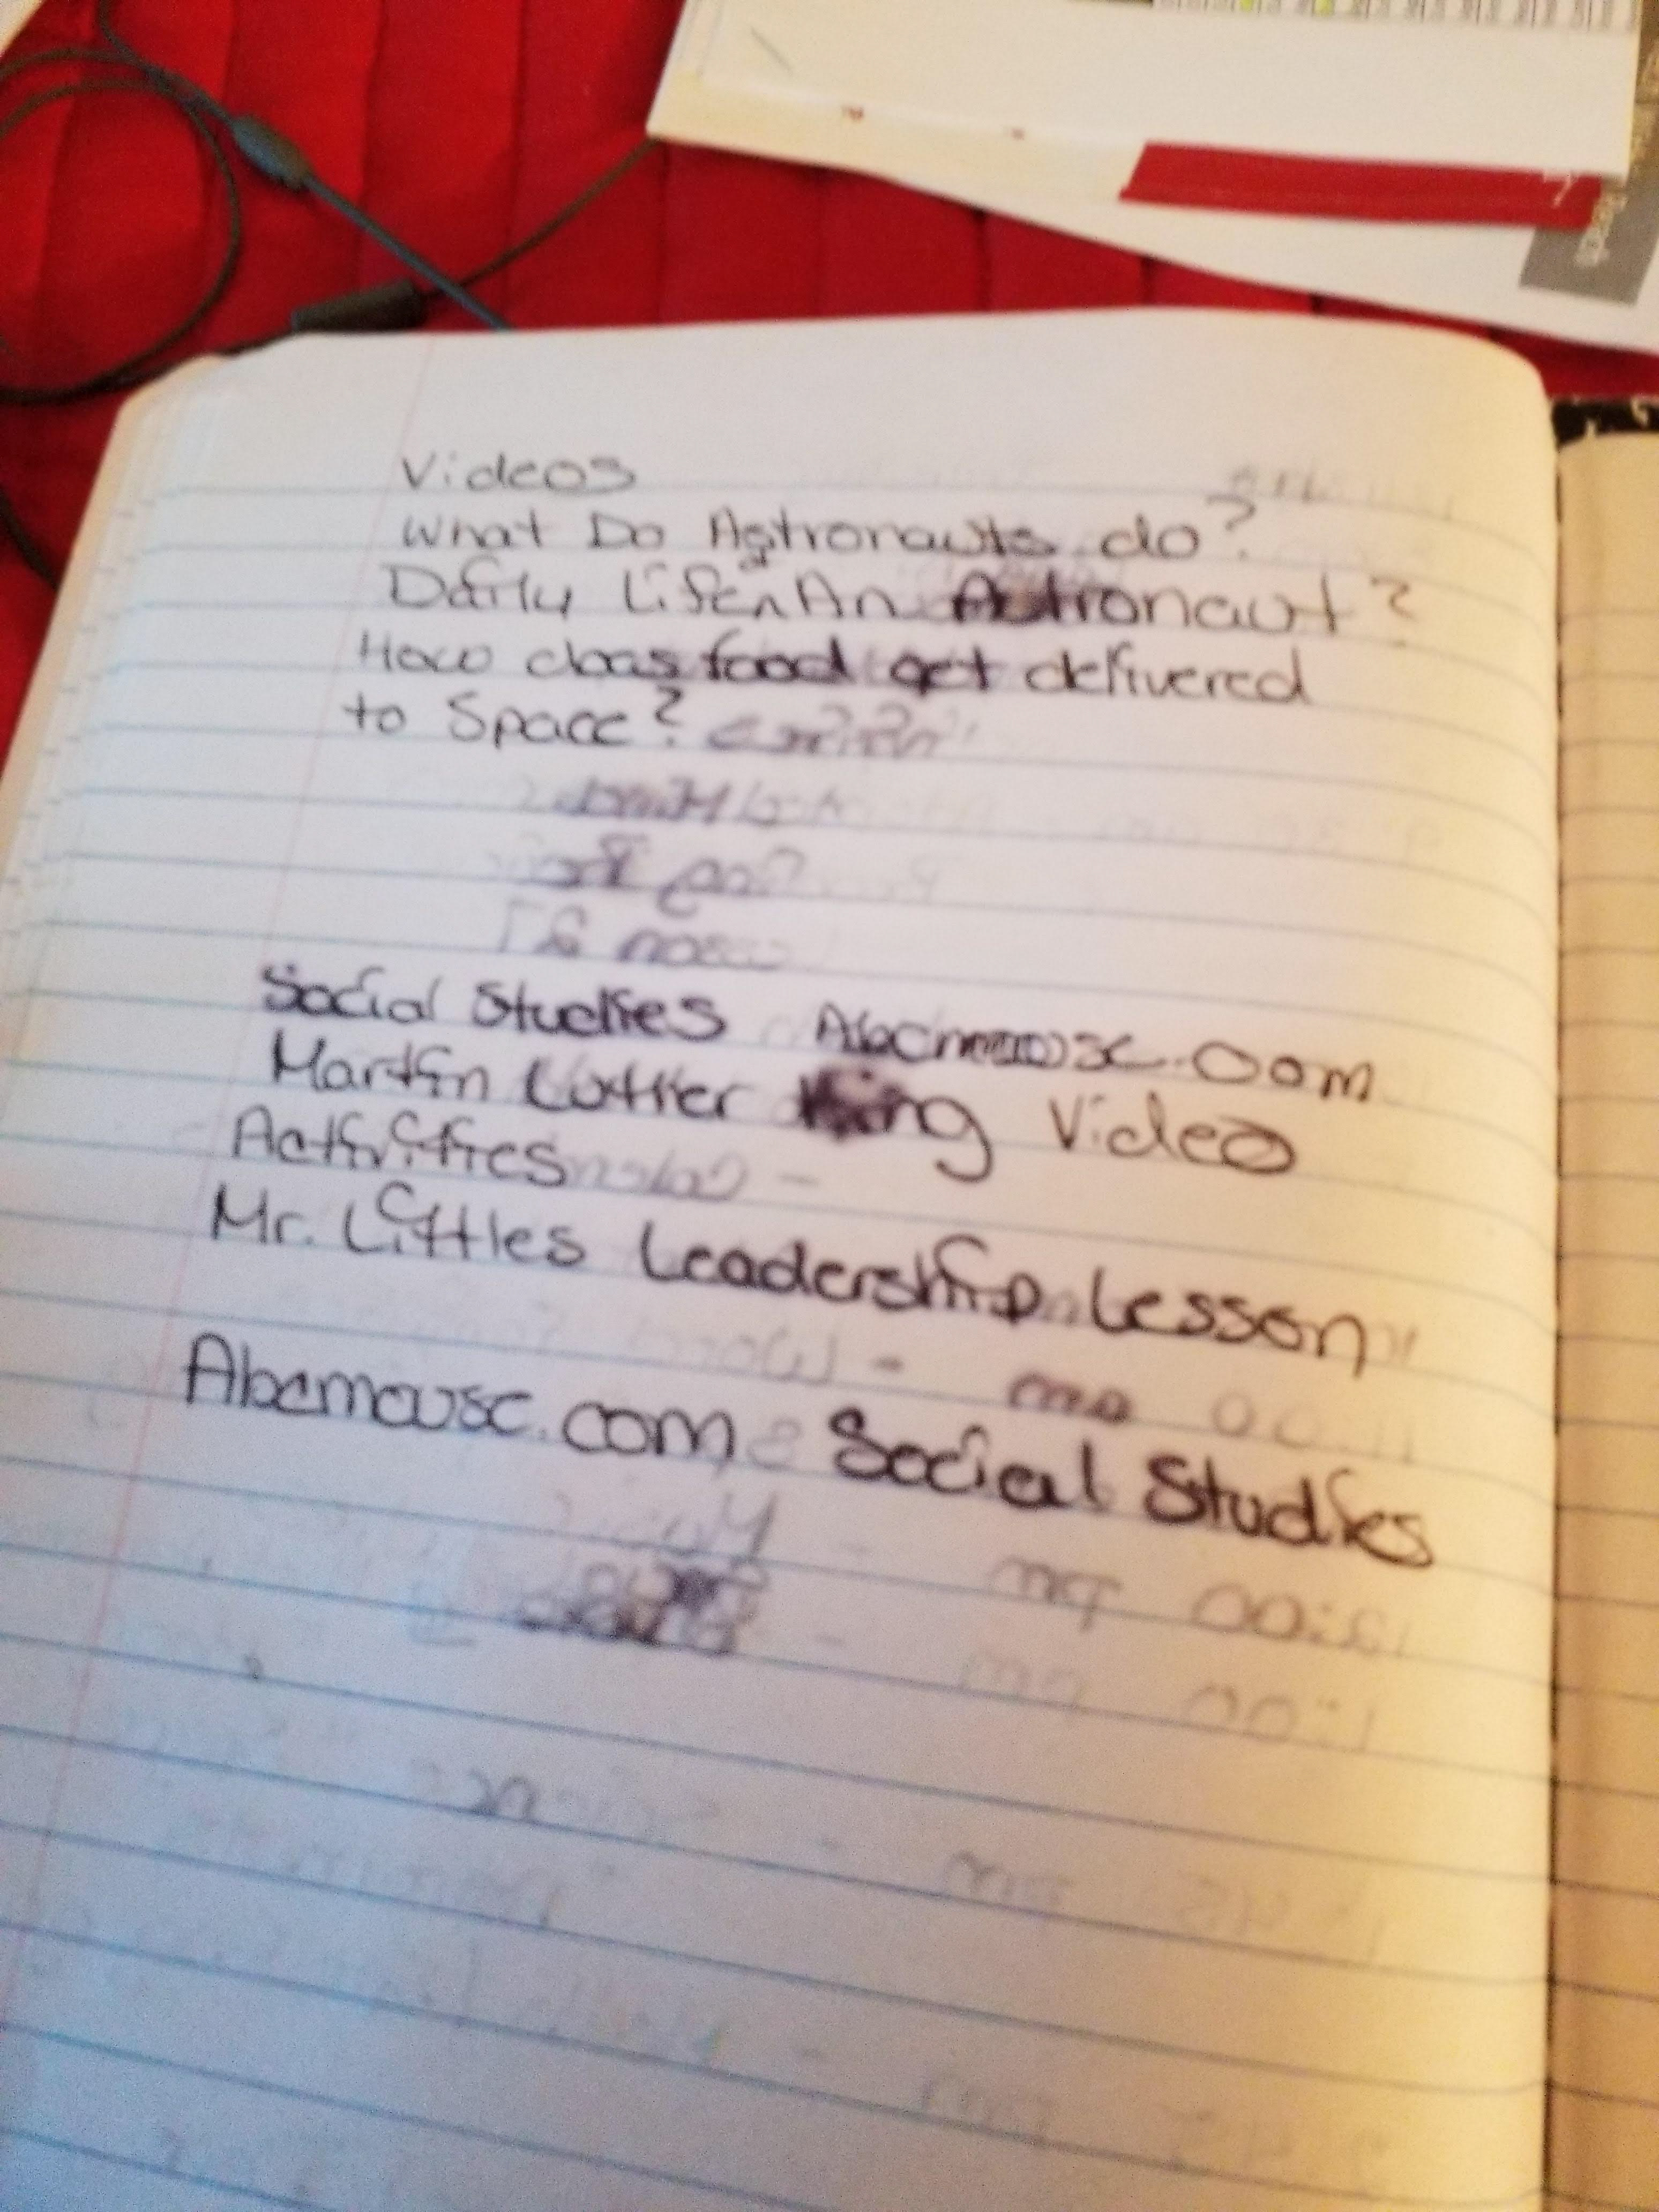 Videos
What Do Astronauts do?
Daily Life of An Astronaut?
How does food get delivered
to Space?
Social Studies Abcmouse.com
Martin Luther King Video
Activities
Mr. Littles Leadership Lesson
Abcmouse.com Social Studies